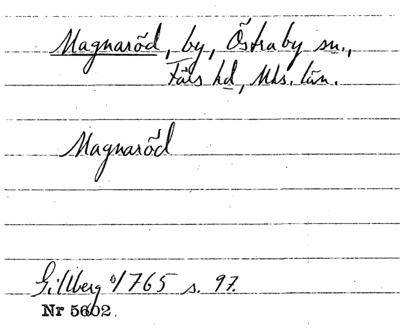 Magnaröd, by, Östraby sn.,
Färs hd, Mhs. län.
Magnaröd
Gillberg 1765 s. 97.
Nr 5602.